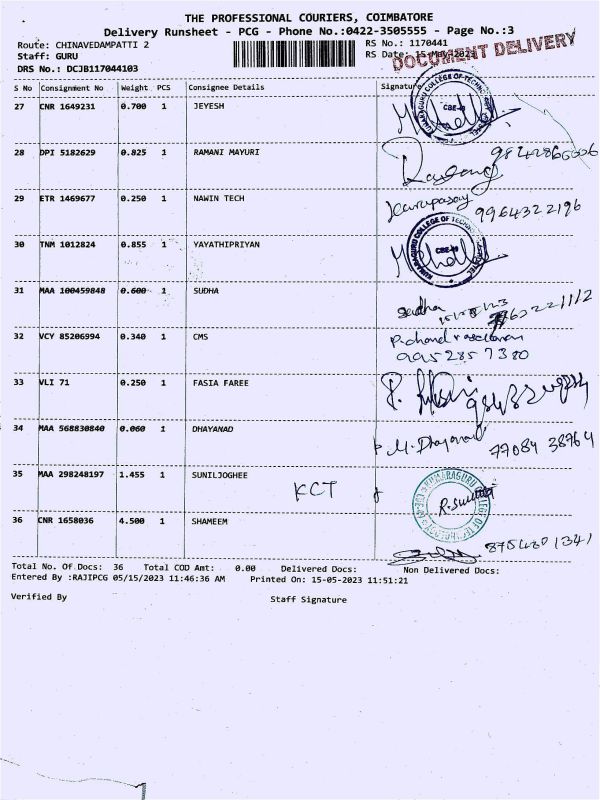 THE PROFESSIONAL COURIERS, COIMBATORE
Delivery Runsheet - PCG - Phone No.:0422-3505555 - Page No.:3
Route: CHINAVEDAMPATTI 2
RS No.: 1170441
Staff: GURU
RS Date: 15-May-2023
DOCUMENT DELIVERY
DRS No.: DCJB117044103
S No Consignment No Weight PCS Consignee Details Signature
27 CNR 1649231 0.700 1 JEYESH
28 DPI 5182629 0.825 1 RAMANI MAYURI
29 ETR 1469677 0.250 1 NAWIN TECH
9964322196
30 TNM 1012824 0.855 1 YAYATHIPRIYAN
31 MAA 100459848 0.600 1 SUDHA
Sudha
32 VCY 85206994 0.340 1 CMS
9952857380
33 VLI 71 0.250 1 FASIA FAREE
34 MAA 568830840 0.060 1 DHAYANAD
77084 38764
35 MAA 298248197 1.455 1 SUNILJOGHEE
KCT
36 CNR 1658036 4.500 1 SHAMEEM
8754801341
Total No. Of Docs: 36 Total COD Amt: 0.00 Delivered Docs: Non Delivered Docs:
Entered By :RAJIPCG 05/15/2023 11:46:36 AM Printed On: 15-05-2023 11:51:21
Verified By Staff Signature